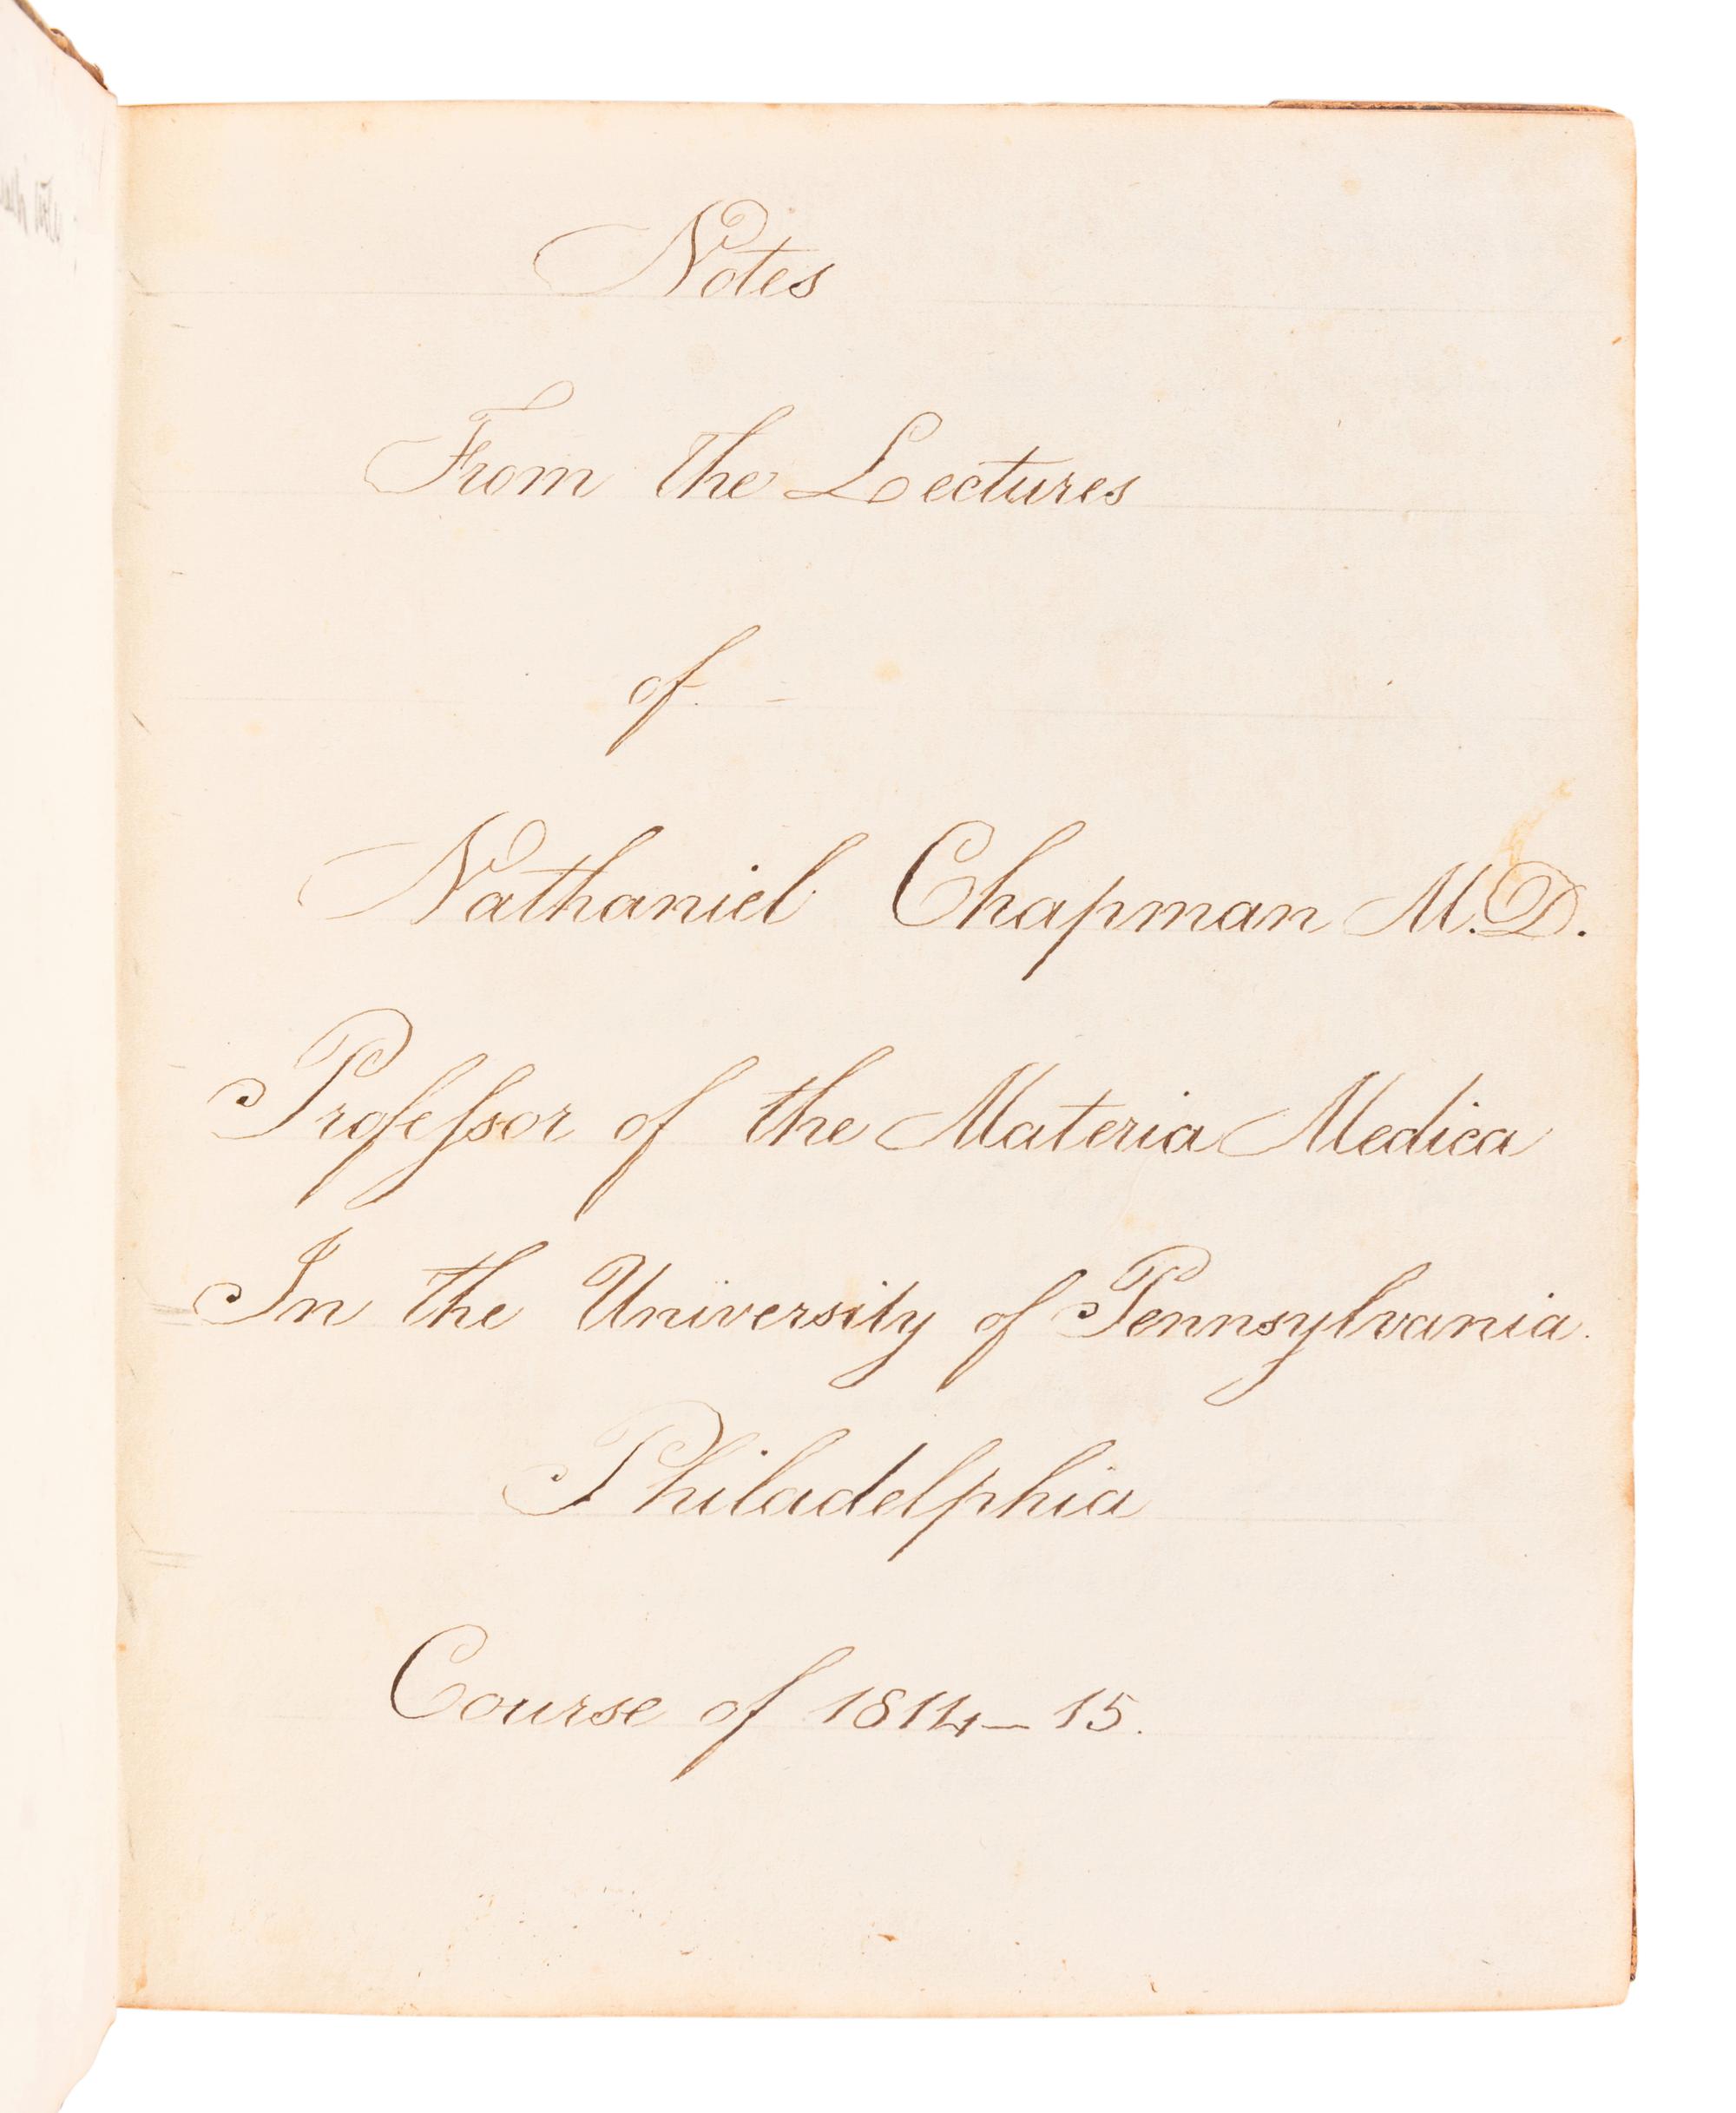 Notes
From the Lectures
of
Nathaniel Chapman M.D.
Profeſsor of the Materia Medica
In the University of Pennsylvania.
Philadelphia
Course of 1814–15.